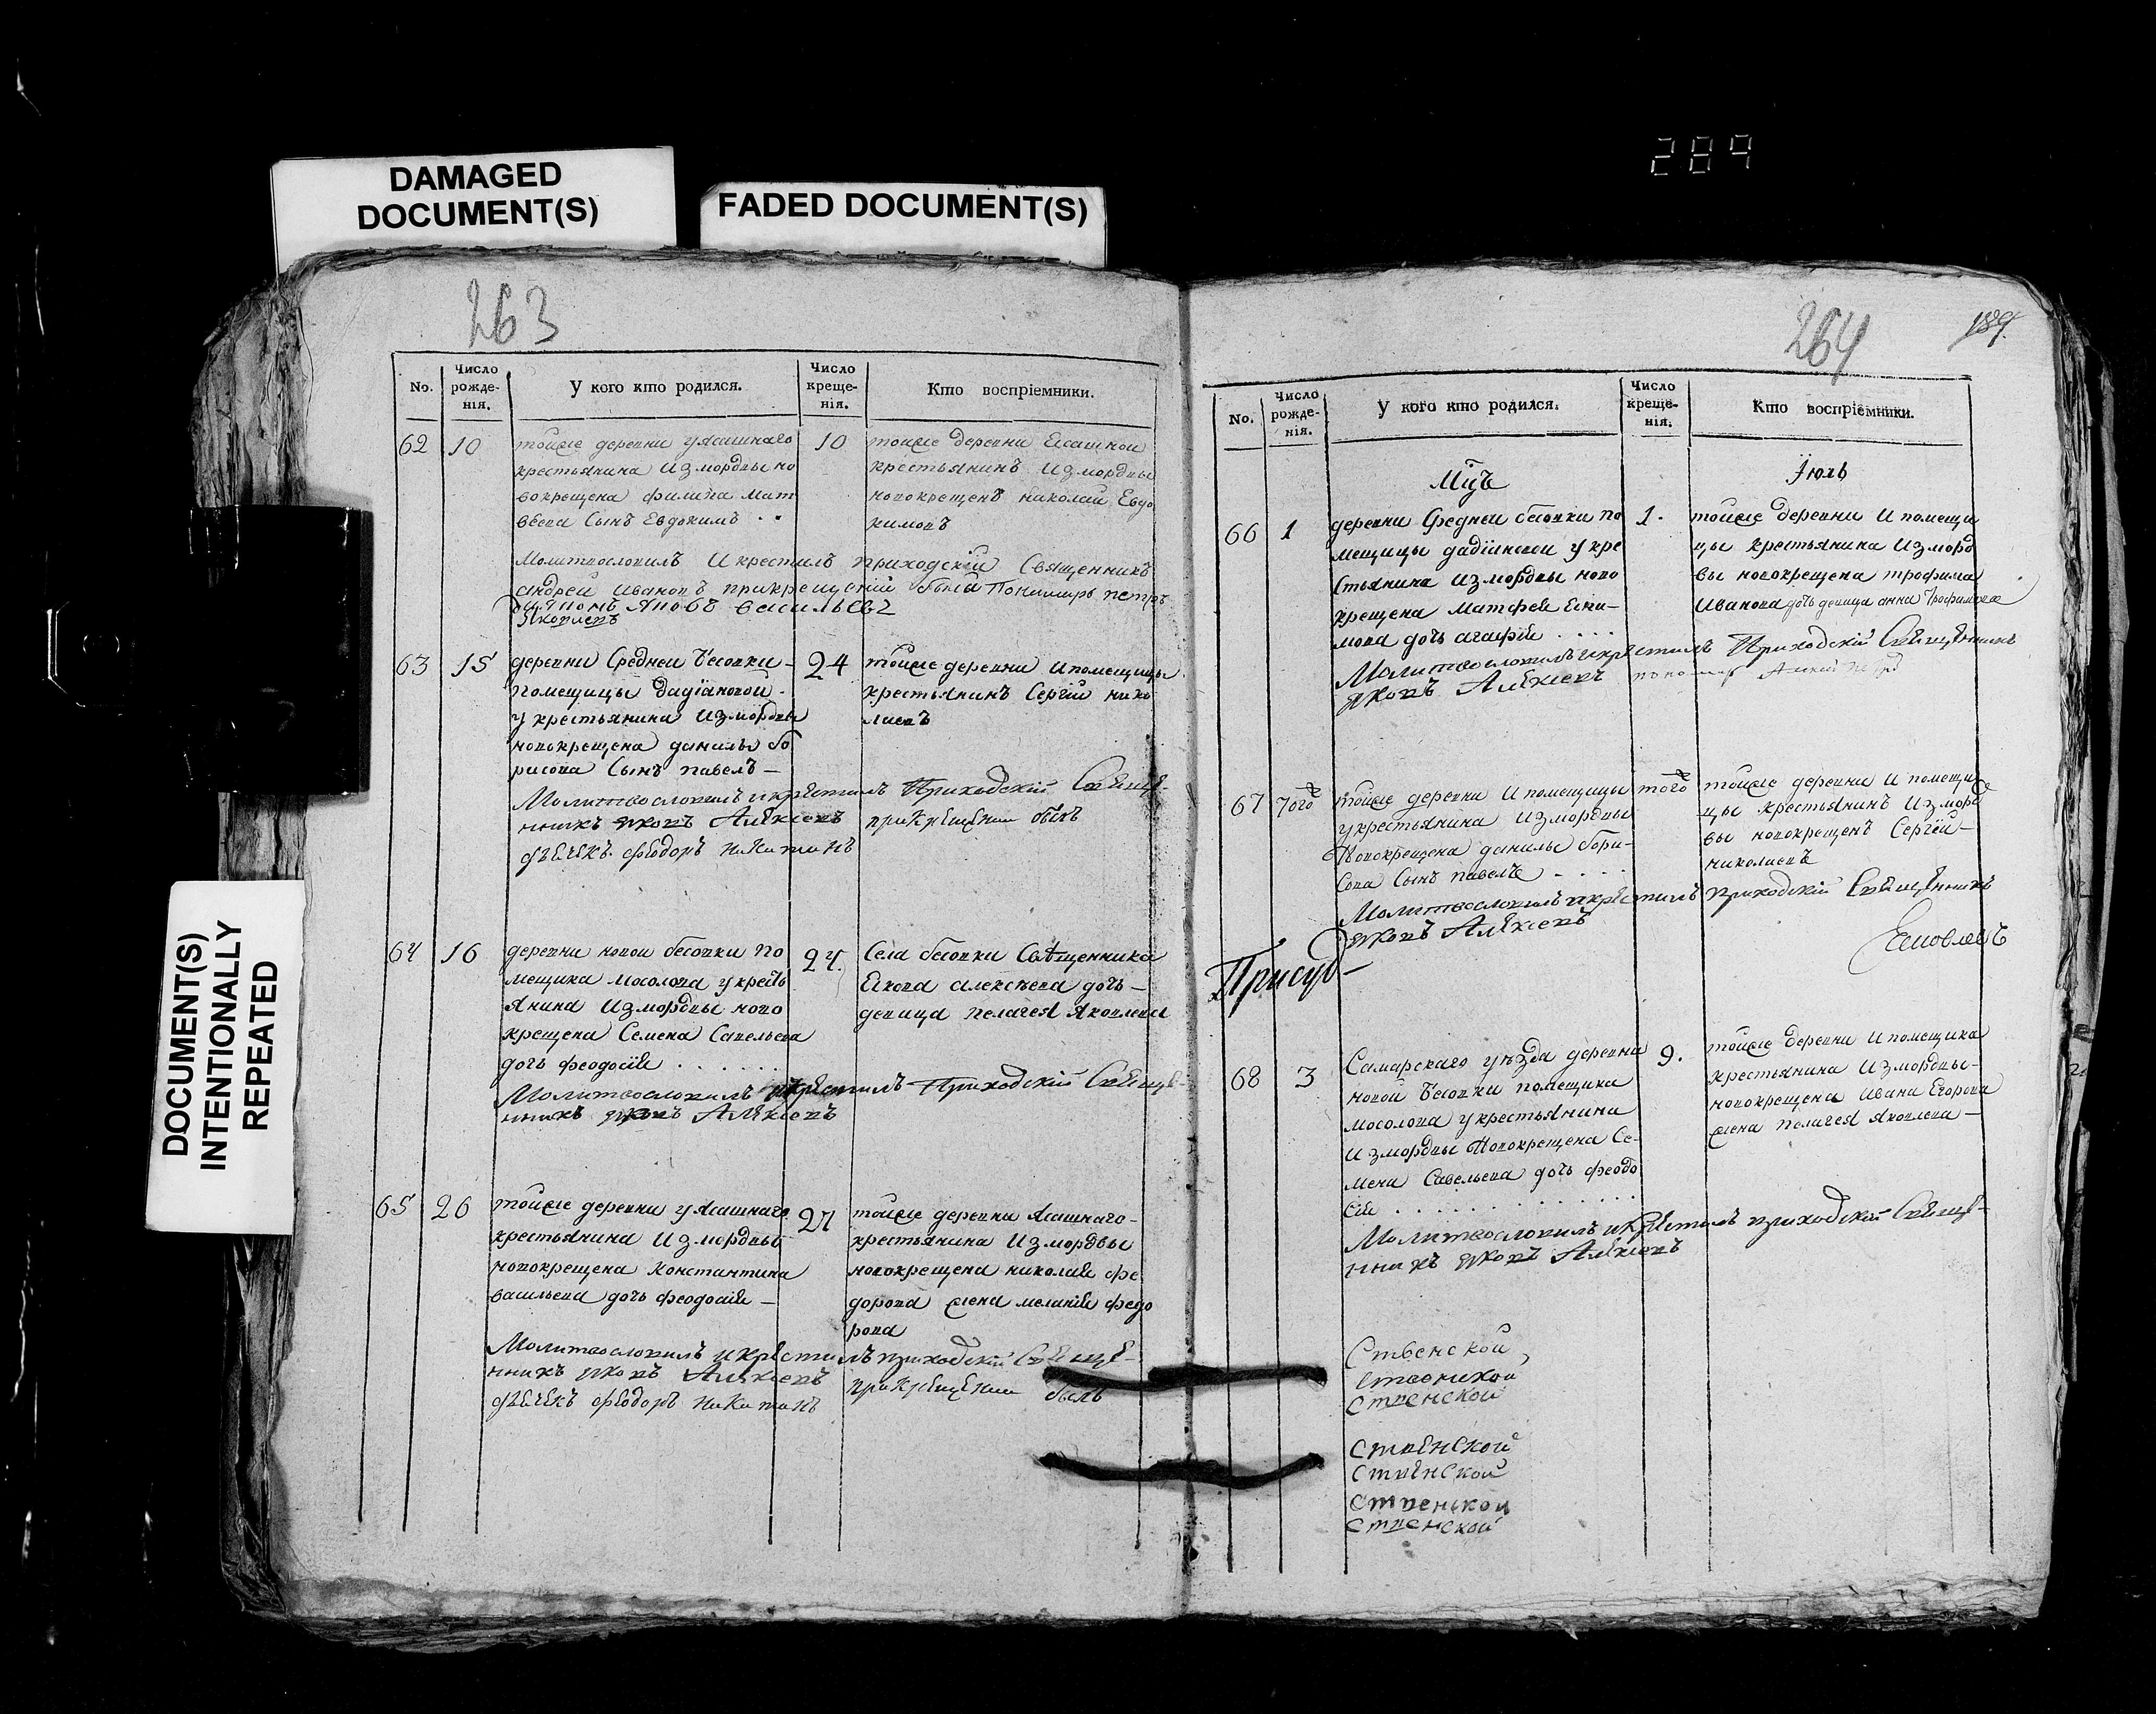 289
DAMAGED
DOCUMENT(S)
FADED DOCUMENT(S)
DOCUMENT(S)
INTENTIONALLY
REPEATED
263
No.
Число
рожде-
нія.
У кого кто родился.
Число
креще-
нія.
Кто воспріемники.
62 10
тойже деревни у ясашнаго
крестьянина изъ мордвы но
вокрещена филипа мат
вѣева сынъ Евдокимъ
10
тойже деревни Ясашной
крестьянинъ измордвы
новокрещенъ николай Евдо
кимовъ
Молитвословилъ и крестилъ приходскій Священникъ
андрей Ивановъ прикрещеній былъ Пономарь петръ
Яковлевъ
63 15
деревни Средней бѣсовки
помещицы дадіановой
у крестьянина измордвы
новокрещена данилы бо
рисова Сынъ павелъ —
24
тойже деревни и помещицы
крестьянинъ Сергій нико
лаевъ
Молитвословилъ икрестилъ Приходскій Свѣще-
нникъ яковъ Алѣксѣевъ прикрещении былъ
дьячекъ феодоръ никитинъ
64 16
деревни новои бесовки по
мещика мосолова у кресть
янина измордвы ново
крещена Семена Савельева
дочь феодосія . . . . . .
24.
Села бесовки Священника
Якова алексѣева дочь —
девица пелагея яковлева
Молитвословилъ икрестилъ Приходскій Свѣще-
нникъ яковъ Алѣксѣевъ
65 26
тойже деревни у ясашнаго
крестьянина измордвы
новокрещена константина
васильева дочь феодосія —
27
тойже деревни ясашнаго-
крестьянина измордвы
новокрещена николая фе
дорова жена меланія федо
рова
Молитвословилъ икрестилъ приходскій Свѣще-
нникъ яковъ Алѣксѣевъ прикрещении былъ
дьячекъ феодоръ никитинъ
264
189.
No.
Число
рожде-
нія.
У кого кто родился.
Число
креще-
нія.
Кто воспріемники.
Мцъ Іюль
66 1
деревни Средней бесовки по
мещицы дадіановой у кре
стьянина измордвы ново
крещена Матфея Еки-
мова дочь агафія . . . .
1.
тойже деревни и помещи
цы крестьянина изморд
вы новокрещена трофима
Иванова дочь девица анна Трофимова
Молитвословилъ икрестилъ Приходскій Свѣщенникъ
яковъ Алѣксѣевъ
67 того
тойже деревни и помещицы
у крестьянина измордвы
новокрещена данилы бори-
сова Сынъ павелъ - . . .
того
тойже деревни и помещи-
цы крестьянинъ измор
вы новокрещенъ Сергей —
николаевъ
Молитвословилъ икрестилъ приходскій Свѣщенникъ
яковъ Алѣксѣевъ
Присуд-
68 3
Самарскаго уѣзда деревни
новой бесовки помещика
мосолова у крестьянина
измордвы новокрещена Се-
мена Савельева дочь феодо
сія . . . . . . . . . . . .
9.
тойже деревни и помещика
крестьянина измордвы-
новокрещена ивана Егорова
жена пелагея яковлева —
Молитвословилъ икрестилъ приходскій Свѣще-
нникъ яковъ Алѣксѣевъ
Ственской
Ственской
Ственской
Ственской
Ственской